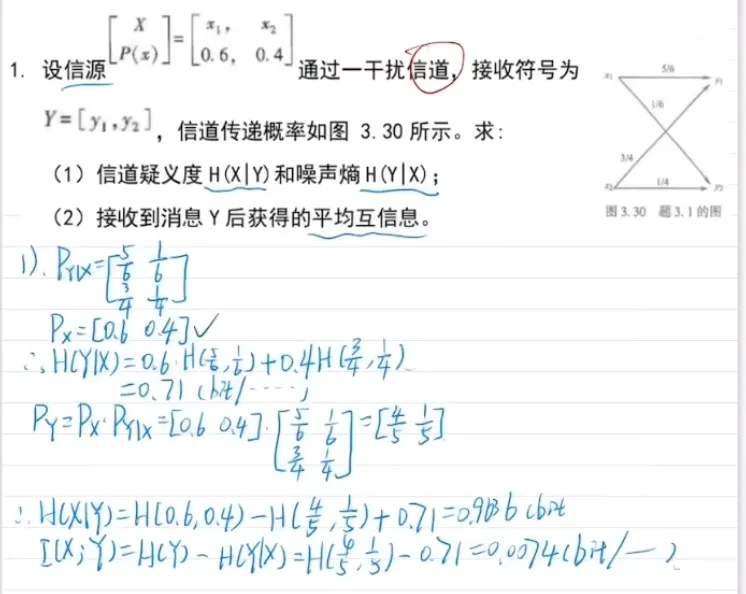 [X P(x)] = [x₁, x₂ 0.6, 0.4]
1. 设信源 通过一干扰信道，接收符号为
Y=[y₁,y₂]，信道传递概率如图 3.30 所示。求：
（1）信道疑义度 H(X|Y)和噪声熵 H(Y|X)；
（2）接收到消息 Y 后获得的平均互信息。
x₁ 5/6 y₁
1/6
3/4
x₂ 1/4 y₂
图 3.30 题 3.1 的图
1). P_{Y|X}=[5/6 1/6 3/4 1/4]
P_X=[0.6 0.4]✓
∴H(Y|X)=0.6·H(5/6,1/6)+0.4H(3/4,1/4)
=0.71 (bit/·····)
P_Y=P_X·P_{Y|X}=[0.6 0.4]·[5/6 1/6 3/4 1/4]=[4/5 1/5]
∴H(X|Y)=H(0.6,0.4)-H(4/5,1/5)+0.71=0.9636 (bit
I(X;Y)=H(Y)-H(Y|X)=H(4/5,1/5)-0.71=0.0074(bit/—)